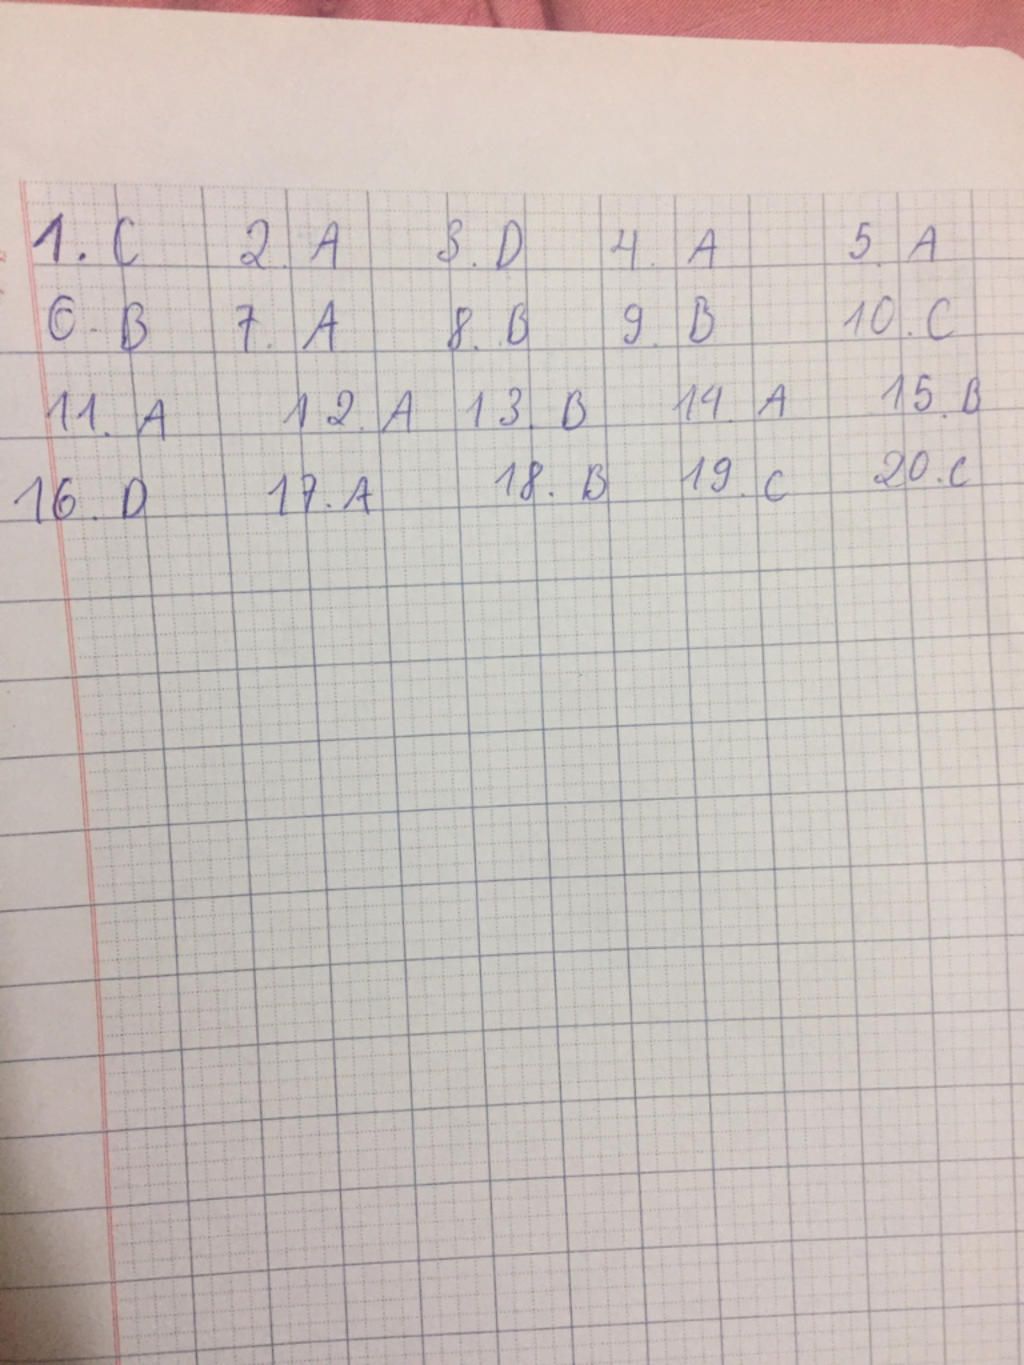 1. C 2. A 3. D 4. A 5. A
6. B 7. A 8. B 9. B 10. C
11. A 12. A 13. B 14. A 15. B
16. D 17. A 18. B 19. C 20. C